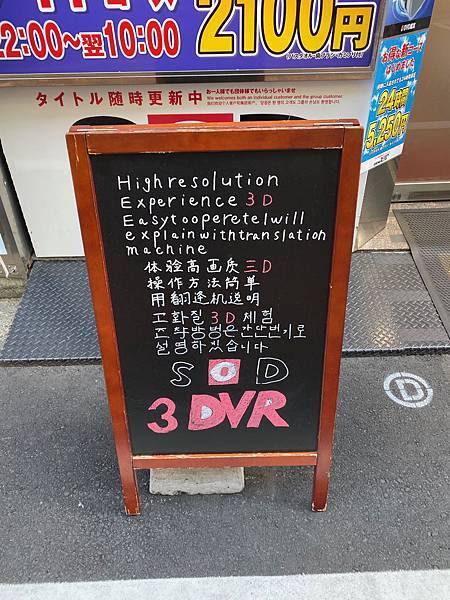 22:00~翌10:00
2100円
タイトル随時更新中
お一人様でも団体様でもいらっしゃいませ
We welcomes both an individual customer and the group customer.
24時間
5,250円
Highresolution
Experience 3D
EasytoopereteIwill
explainwithtranslation
machine
体验高画质三D
操作方法简单
用翻逢机说明
고화질 3D 체험
조작방법은 간단번기로
설명하겠습니다
SOD
3DVR
D